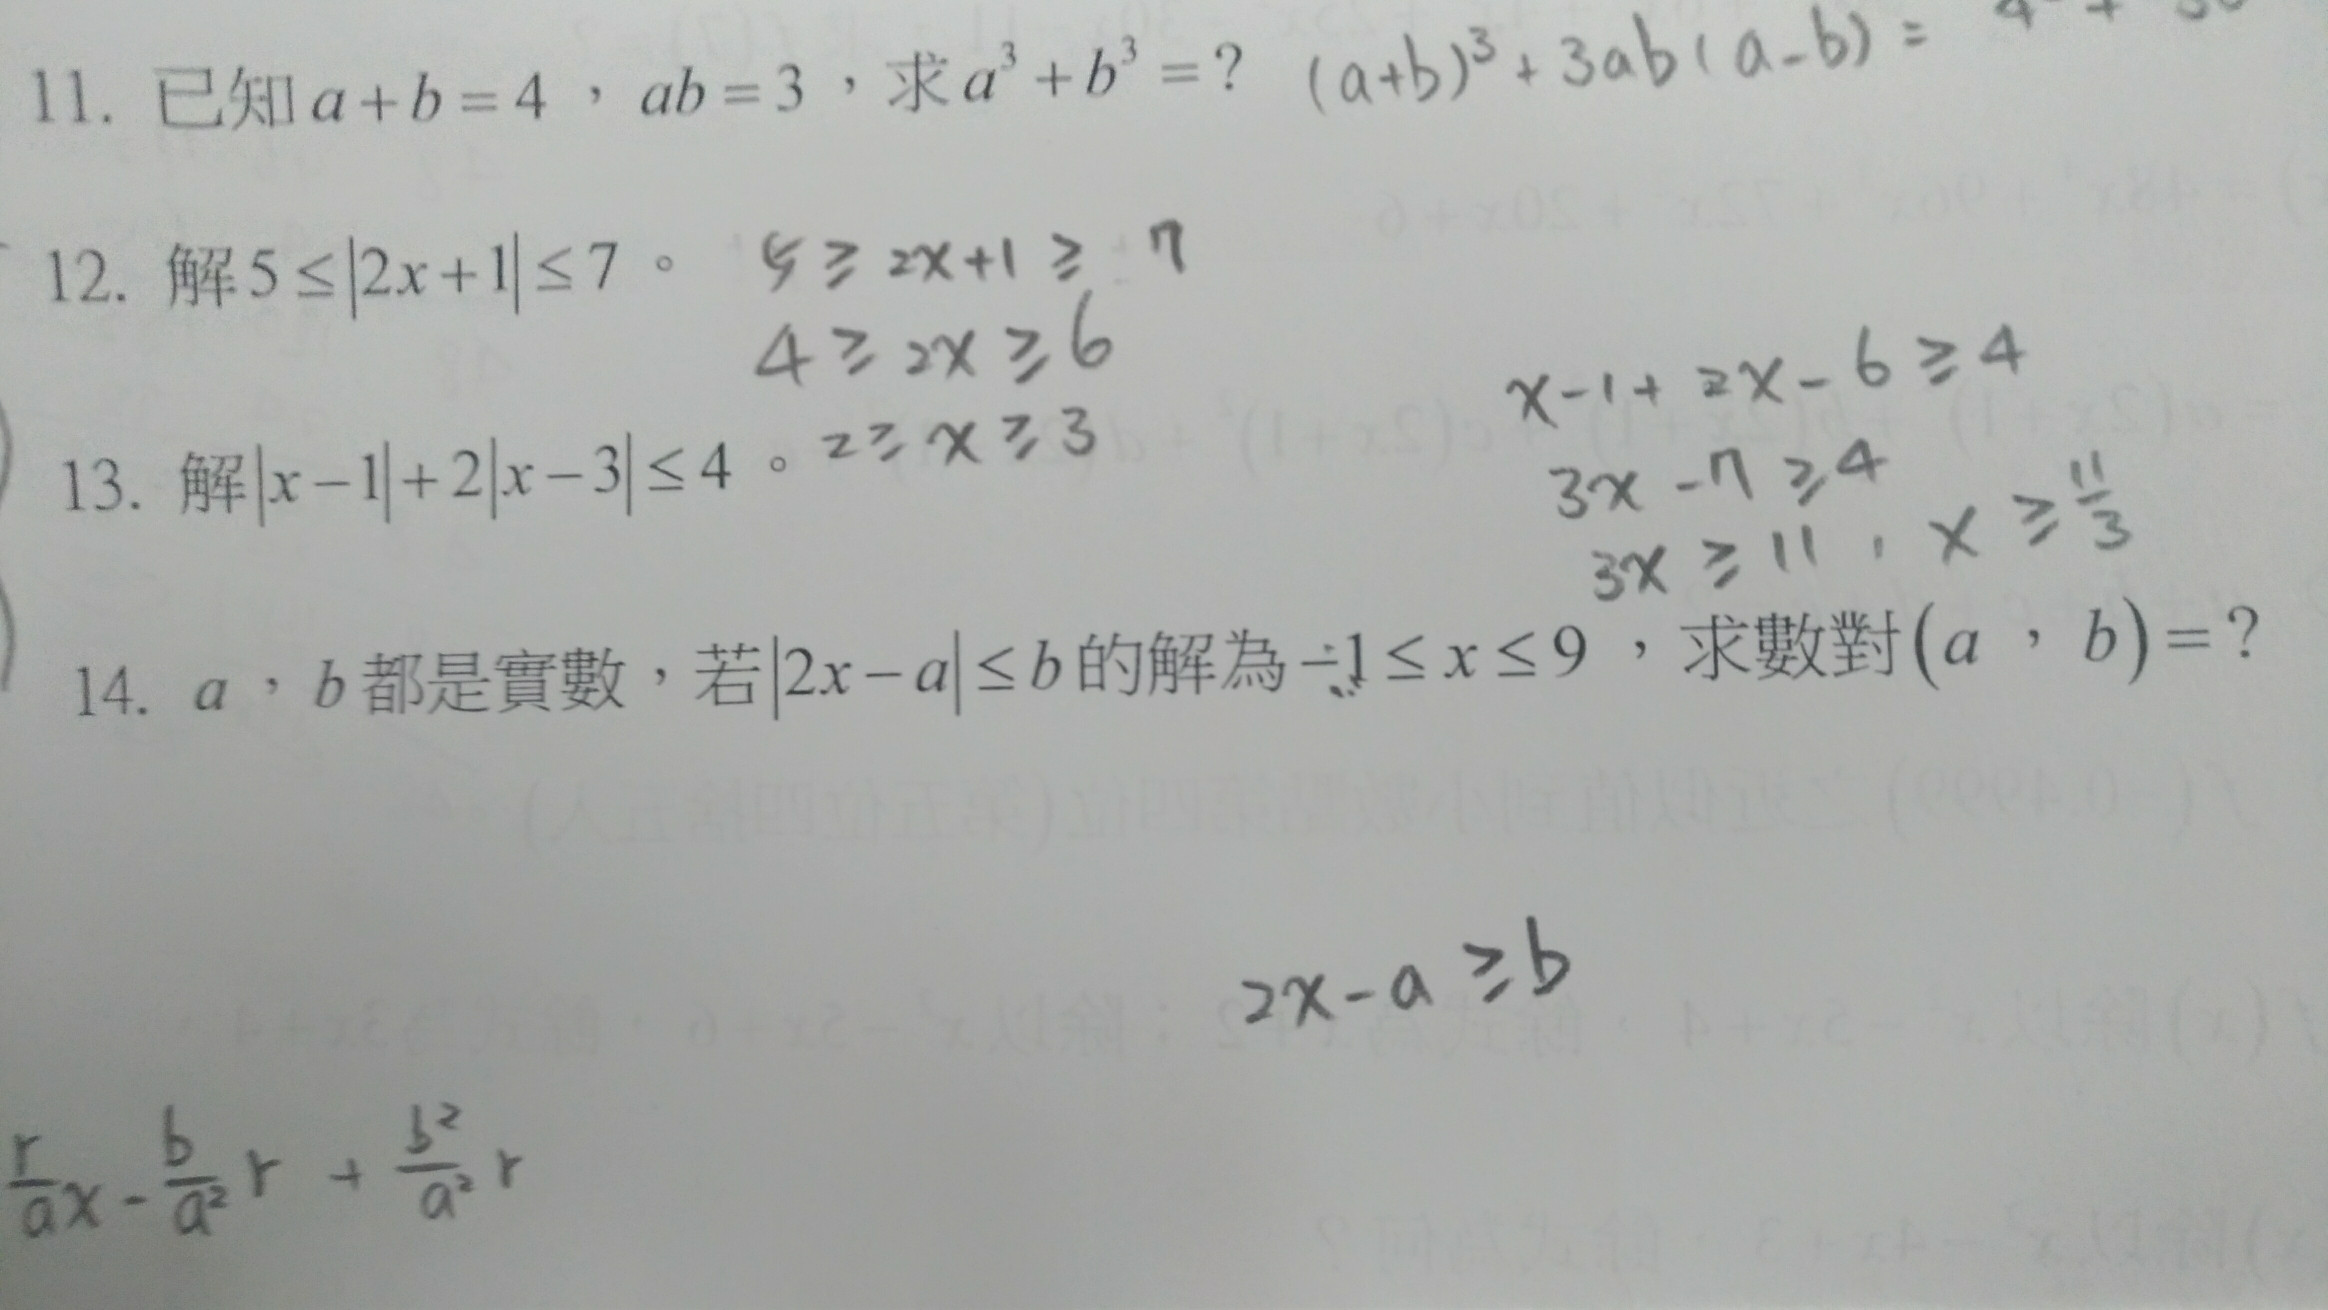 11. 已知 a + b = 4 ， ab = 3 ，求 a³ + b³ = ? (a+b)³ + 3ab(a-b) =
12. 解 5 ≤ |2x + 1| ≤ 7 。 5 ≥ 2x+1 ≥ 7
4 ≥ 2x ≥ 6
x-1+2x-6 ≥ 4
13. 解 |x - 1| + 2|x - 3| ≤ 4 。 2 ≥ x ≥ 3
3x-7 ≥ 4
3x ≥ 11 , x ≥ 11/3
14. a ， b 都是實數，若 |2x - a| ≤ b 的解為 -1 ≤ x ≤ 9 ，求數對 (a ， b) = ?
2x-a ≥ b
r/a x - b/a² r + b²/a² r